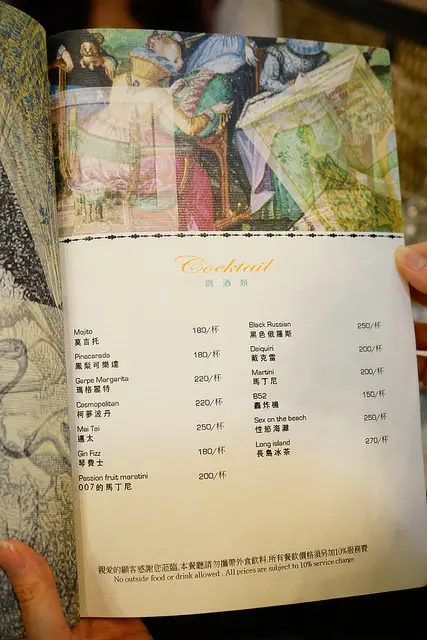 Cocktail
調酒類
Mojito 180/杯
莫吉托
Pinacarada 180/杯
鳳梨可樂達
Garpe Margarita 220/杯
瑪格麗特
Cosmopolitan 220/杯
柯夢波丹
Mai Tai 250/杯
邁太
Gin Fizz 180/杯
琴費士
Passion fruit maratini 200/杯
007的馬丁尼
Black Russian 250/杯
黑色俄羅斯
Daiquiri 200/杯
戴克雷
Martini 200/杯
馬丁尼
B52 150/杯
轟炸機
Sex on the beach 250/杯
性慾海灘
Long island 270/杯
長島冰茶
親愛的顧客感謝您蒞臨,本餐廳請勿攜帶外食飲料,所有餐飲價格須另加10%服務費
No outside food or drink allowed . All prices are subject to 10% service charge